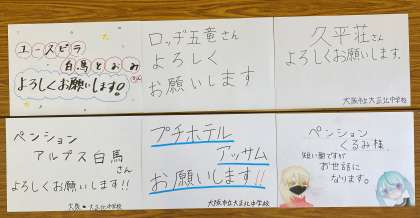 ユースピラ
白馬とおみ
さん
よろしくお願いします!
ロッヂ五竜さん
よろしく
お願いします
久平荘さん
よろしくお願いします.
大阪市立大正北中学校
ペンション
アルプス白馬
さん
よろしくお願いします!!
大阪・大正北中学校
プチホテル
アッサム
お願いします!!
大阪市立大正北中学校
ペンション
くるみ様,
短い間ですが
お世話に
なります。